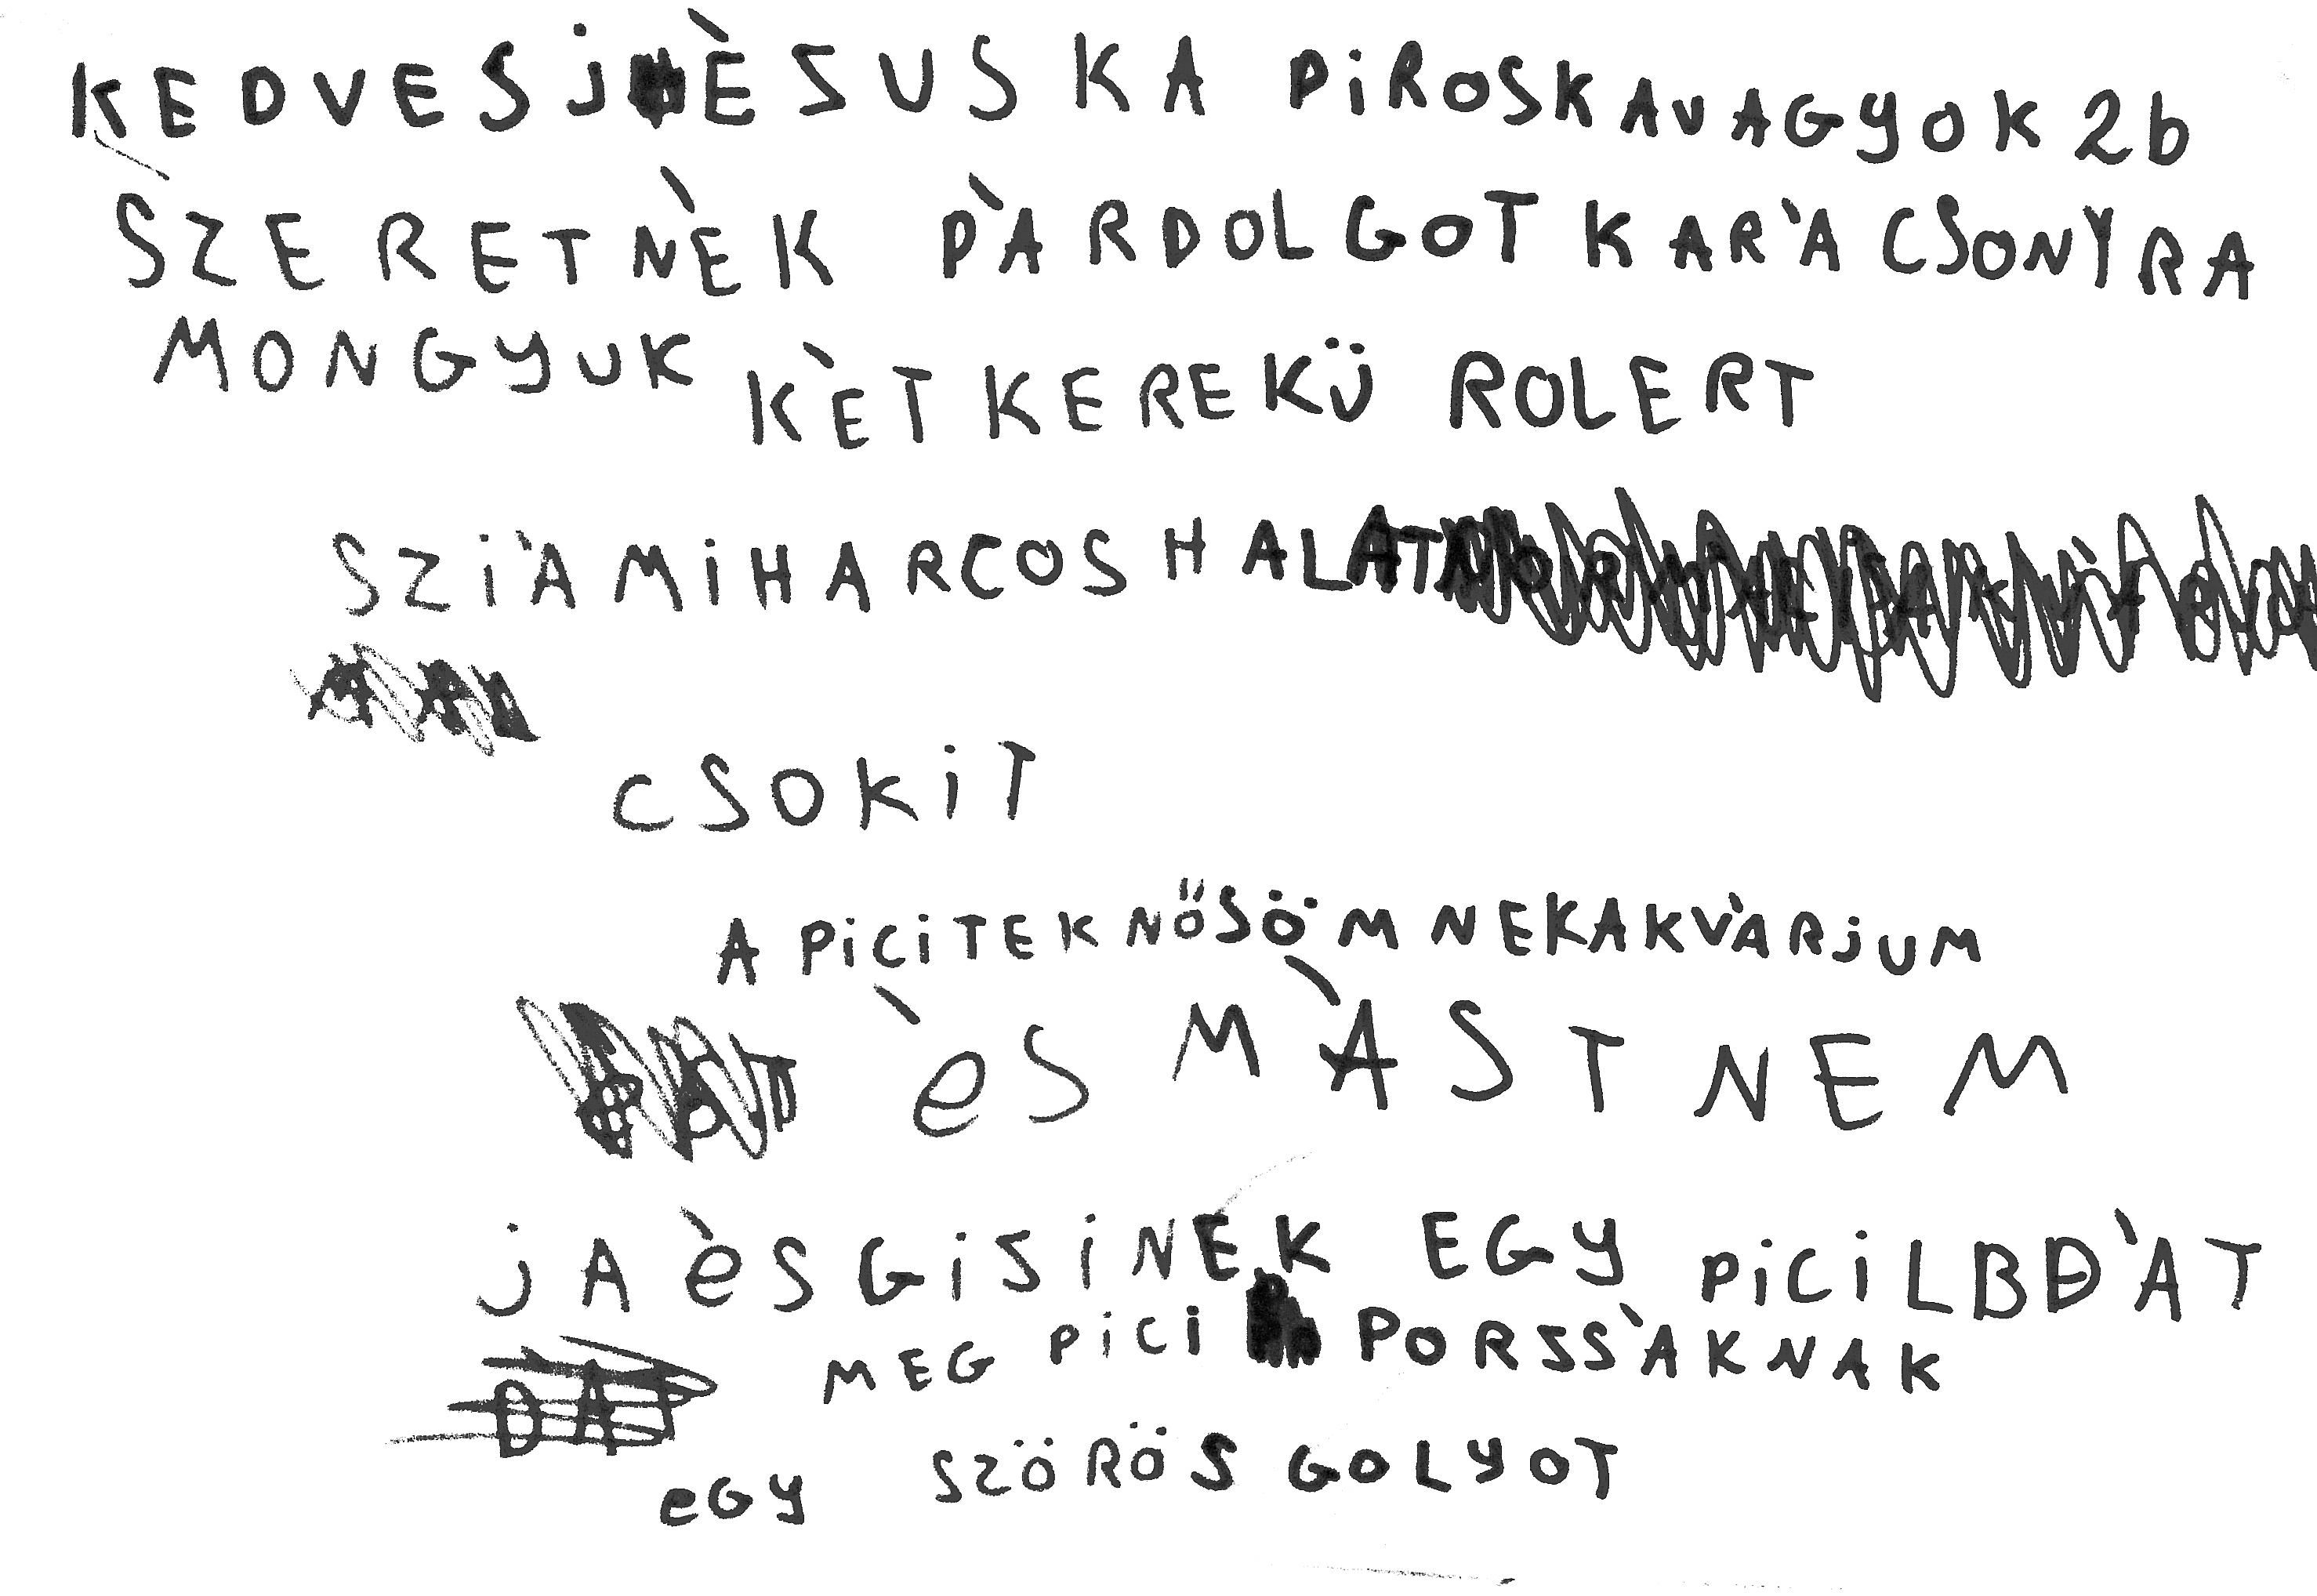 KEDVES JÈSUSKA PiROSKAVAGYOK 2b
SZERETNÈK PÀRDOLGOT KARÀCSONYRA
MONGYUK KÈTKEREKÜ ROLERT
SZiÀMiHARCOS HALAT
CSOKiT
A PiCiTEKNŐSÖMNEKAKVÀRjUM
ès MÀST NEM
jA èS GiSiNEK EGY PiCiLBDÀT
MEG PiCi PORSSÀKNAK
eGY SZÖRÖS GOLYOT